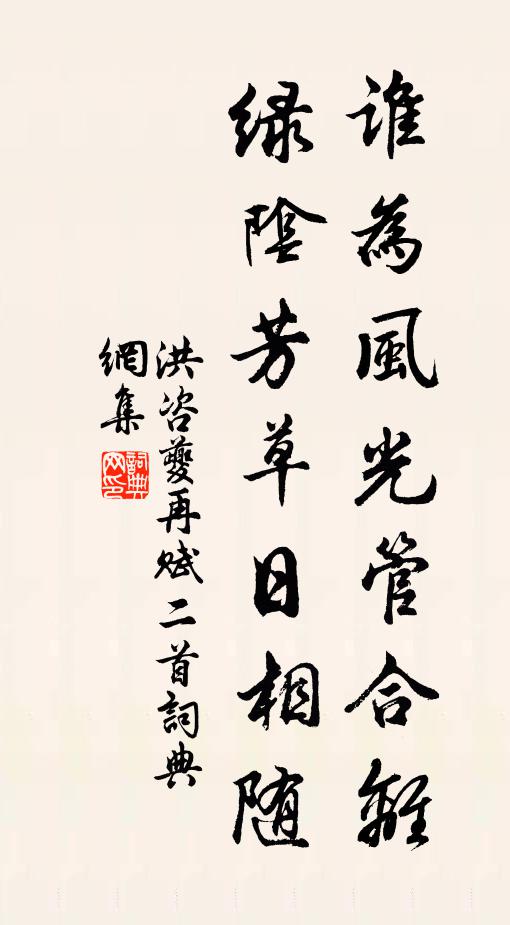 誰為風光管合離
綠陰芳草日相随
洪咨夔再賦二首詞典
網集
詞典
网印